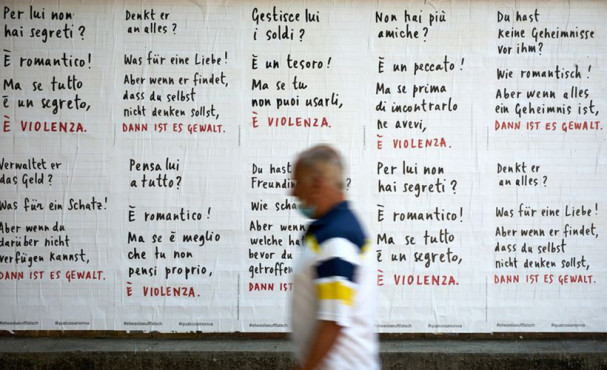 Per lui non
hai segreti?
È romantico!
Ma se tutto
è un segreto,
È VIOLENZA.
Denkt er
an alles?
Was für eine Liebe!
Aber wenn er findet,
dass du selbst
nicht denken sollst,
DANN IST ES GEWALT.
Gestisce lui
i soldi?
È un tesoro!
Ma se tu
non puoi usarli,
È VIOLENZA.
Non hai più
amiche?
È un peccato!
Ma se prima
di incontrarlo
ne avevi,
È VIOLENZA.
Du hast
keine Geheimnisse
vor ihm?
Wie romantisch!
Aber wenn alles
ein Geheimnis ist,
DANN IST ES GEWALT.
Verwaltet er
das Geld?
Was für ein Schatz!
Aber wenn du
darüber nicht
verfügen kannst,
DANN IST ES GEWALT.
Pensa lui
a tutto?
È romantico!
Ma se è meglio
che tu non
pensi proprio,
È VIOLENZA.
Du hast
Wie
Aber wenn
welche
bevor du
getroffen
DANN IST
Per lui non
hai segreti?
È romantico!
Ma se tutto
è un segreto,
È VIOLENZA.
Denkt er
an alles?
Was für eine Liebe!
Aber wenn er findet,
dass du selbst
nicht denken sollst,
DANN IST ES GEWALT.